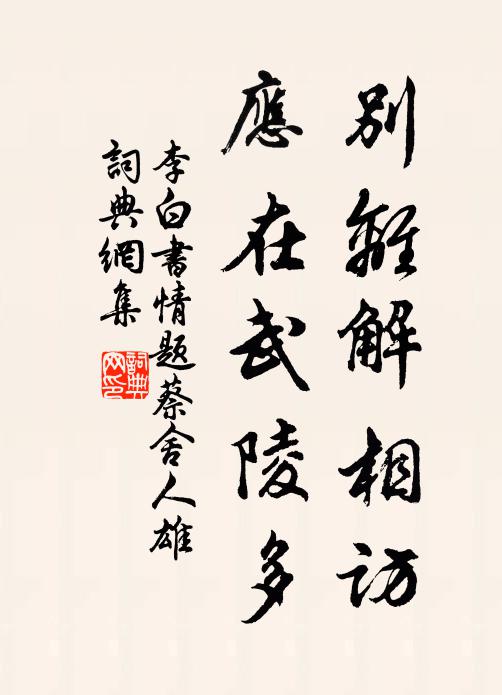 別離解相訪
應在武陵多
李白書情題蔡舍人雄
詞典網集
詞典
网印